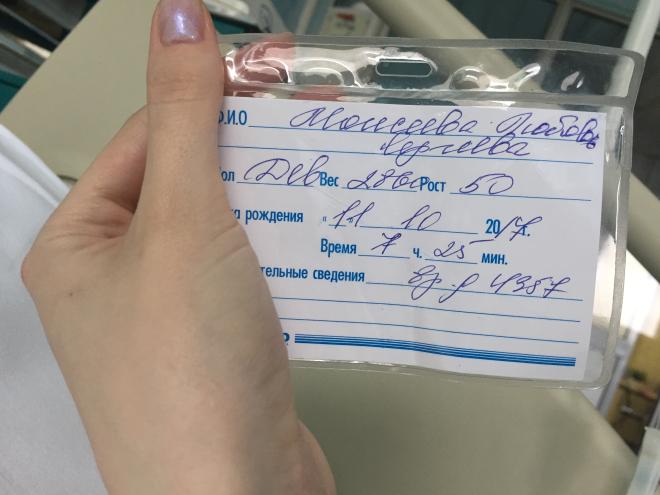 Ф.И.О Моисеева Любовь
пол Дев Вес 2860 Рост 50
та рождения "11" 10 2017г.
Время 7 ч. 25 мин.
тельные сведения 4357